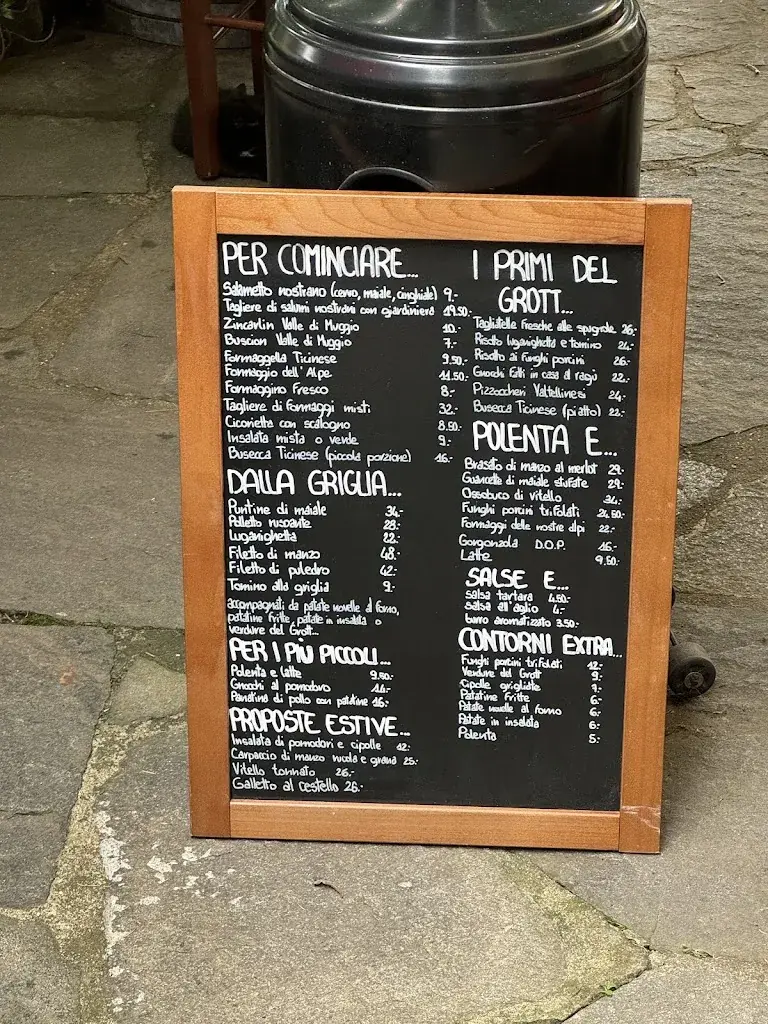 PER COMINCIARE...
Salametto nostrano (cervo, maiale, cinghiale) 9.-
Tagliere di salumi nostrani con giardiniera 19.50.-
Zincarlin Valle di Muggio 10.-
Buscion Valle di Muggio 7.-
Formaggella Ticinese 9.50.-
Formaggio dell'Alpe 11.50.-
Formaggino Fresco 8.-
Tagliere di formaggi misti 32.-
Cicorietta con scalogno 8.50.-
Insalata mista o verde 9.-
Busecca Ticinese (piccola porzione) 16.-
DALLA GRIGLIA...
Puntine di maiale 34.-
Polletto ruspante 28.-
Luganighetta 22.-
Filetto di manzo 48.-
Filetto di puledro 42.-
Tomino alla griglia 9.-
accompagnati da patate novelle al forno,
patatine fritte, patate in insalata o
verdure del Grott...
PER I PIÙ PICCOLI...
Polenta e latte 9.50.-
Gnocchi al pomodoro 14.-
Panatina di pollo con patatine 16.-
PROPOSTE ESTIVE...
Insalata di pomodori e cipolle 12.-
Carpaccio di manzo rucola e grana 25.-
Vitello tonnato 26.-
Galletto al cestello 26.-
I PRIMI DEL
GROTT...
Tagliatelle fresche alle spugnole 26.-
Risotto luganighetta e tomino 24.-
Risotto ai funghi porcini 26.-
Gnocchi fatti in casa al ragù 22.-
Pizzoccheri Valtellinesi 24.-
Busecca Ticinese (piatto) 22.-
POLENTA E...
Brasato di manzo al merlot 29.-
Guancette di maiale stufate 29.-
Ossobuco di vitello 34.-
Funghi porcini trifolati 24.50.-
Formaggi delle nostre alpi 22.-
Gorgonzola D.O.P. 16.-
Latte 9.50.-
SALSE E...
salsa tartara 4.50.-
salsa all'aglio 4.-
burro aromatizzato 3.50.-
CONTORNI EXTRA...
Funghi porcini trifolati 12.-
Verdure del Grott 9.-
Cipolle grigliate 7.-
Patatine Fritte 6.-
Patate novelle al forno 6.-
Patate in insalata 6.-
Polenta 5.-